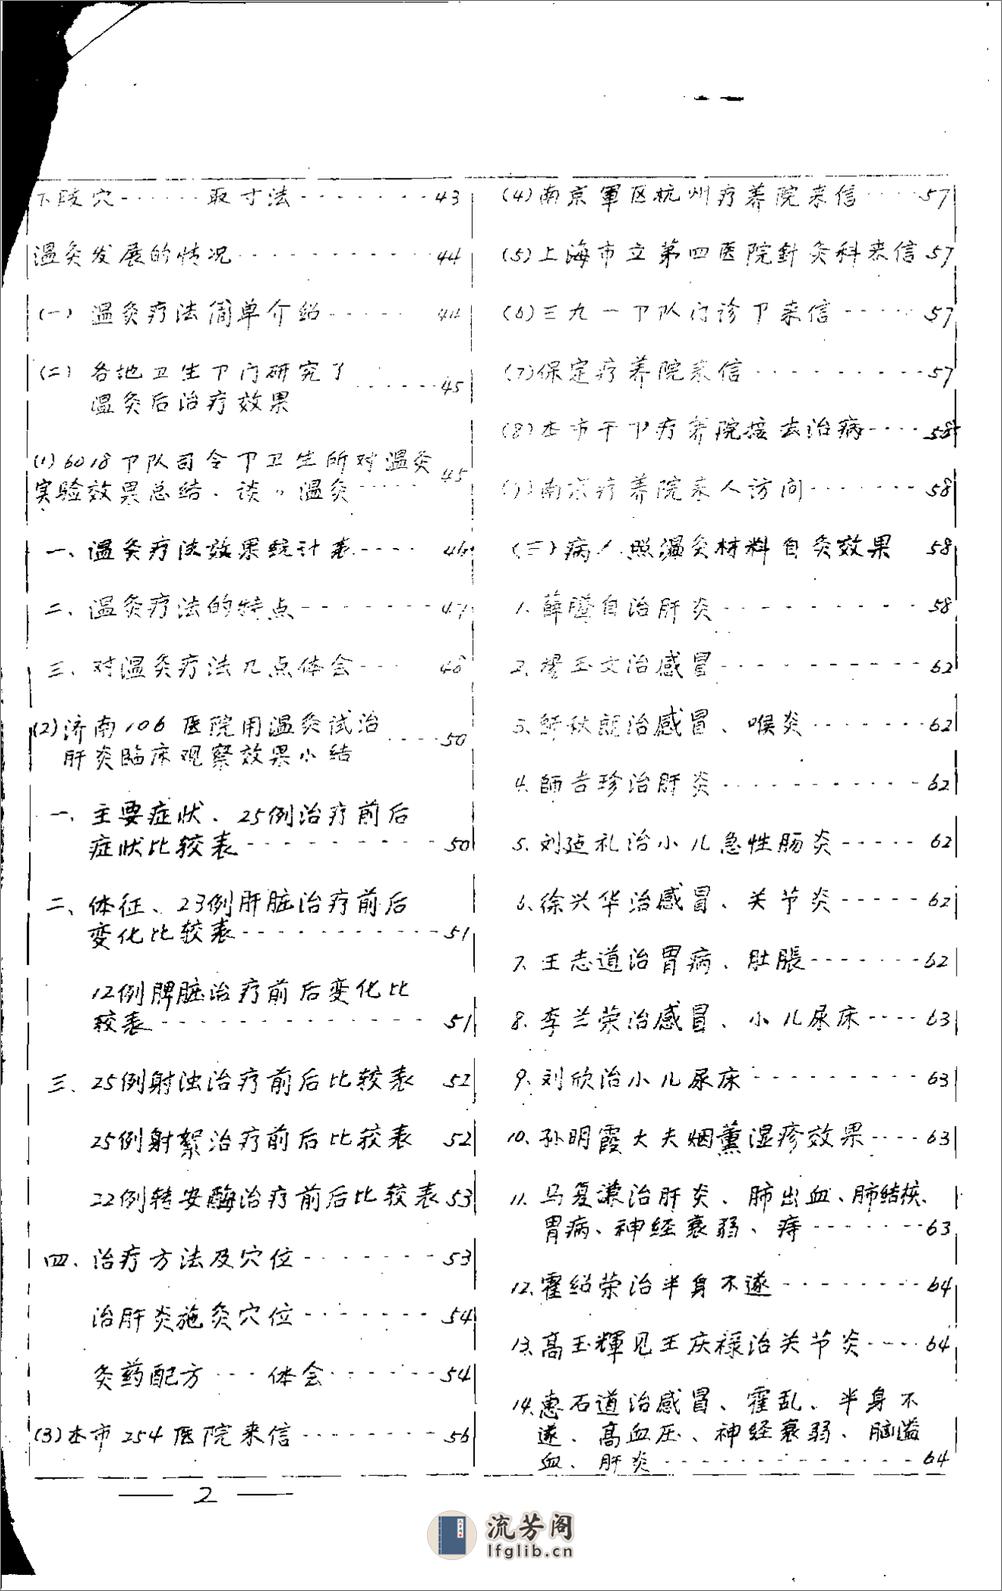 下肢穴……取寸法……43
温灸发展的情况……44
(一) 温灸疗法简单介绍……44
(二) 各地卫生下门研究了
温灸后治疗效果……45
(1) 6018下队司令下卫生所对温灸
实验效果总结、谈〃温灸……45
一、温灸疗法效果统计表……46
二、温灸疗法的特点……47
三、对温灸疗法几点体会……48
(2)济南106医院用温灸试治
肝炎临床观察效果小结……50
一、主要症状、25例治疗前后
症状比较表……50
二、体征、23例肝脏治疗前后
变化比较表……51
12例脾脏治疗前后变化比
较表……51
三、25例射浊治疗前后比较表 52
25例射絮治疗前后比较表 52
22例转安酶治疗前后比较表53
四、治疗方法及穴位……53
治肝炎施灸穴位……54
灸药配方…体会……54
(3)本市254医院来信……56
(4)南京軍区杭州疗养院来信……57
(5)上海市立第四医院針灸科来信57
(6)三九一下队门诊下来信……57
(7)保定疗养院来信……57
(8)本市干下疗养院接去治病……58
南京疗养院来人访问……58
(三)病人照温灸材料自灸效果 58
1.薛腾自治肝炎……58
2.楊玉文治感冒……62
3.治感冒、喉炎……62
4.師吉珍治肝炎……62
5.刘廷礼治小儿急性肠炎……62
6.徐兴华治感冒、关节炎……62
7.王志道治胃病、肚脹……62
8.李兰荣治感冒、小儿尿床……63
9.刘欣治小儿尿床……63
10.孙明霞大夫烟薰湿疹效果……63
11.马复谦治肝炎、肺出血、肺结核、
胃病、神经衰弱、痔……63
12.霍绍荣治半身不遂……64
13.高玉輝见王庆禄治关节炎……64
14.惠石道治感冒、霍乱、半身不
遂、高血压、神经衰弱、脑溢
血、肝炎……64
— 2 —
流芳阁
lfglib.cn